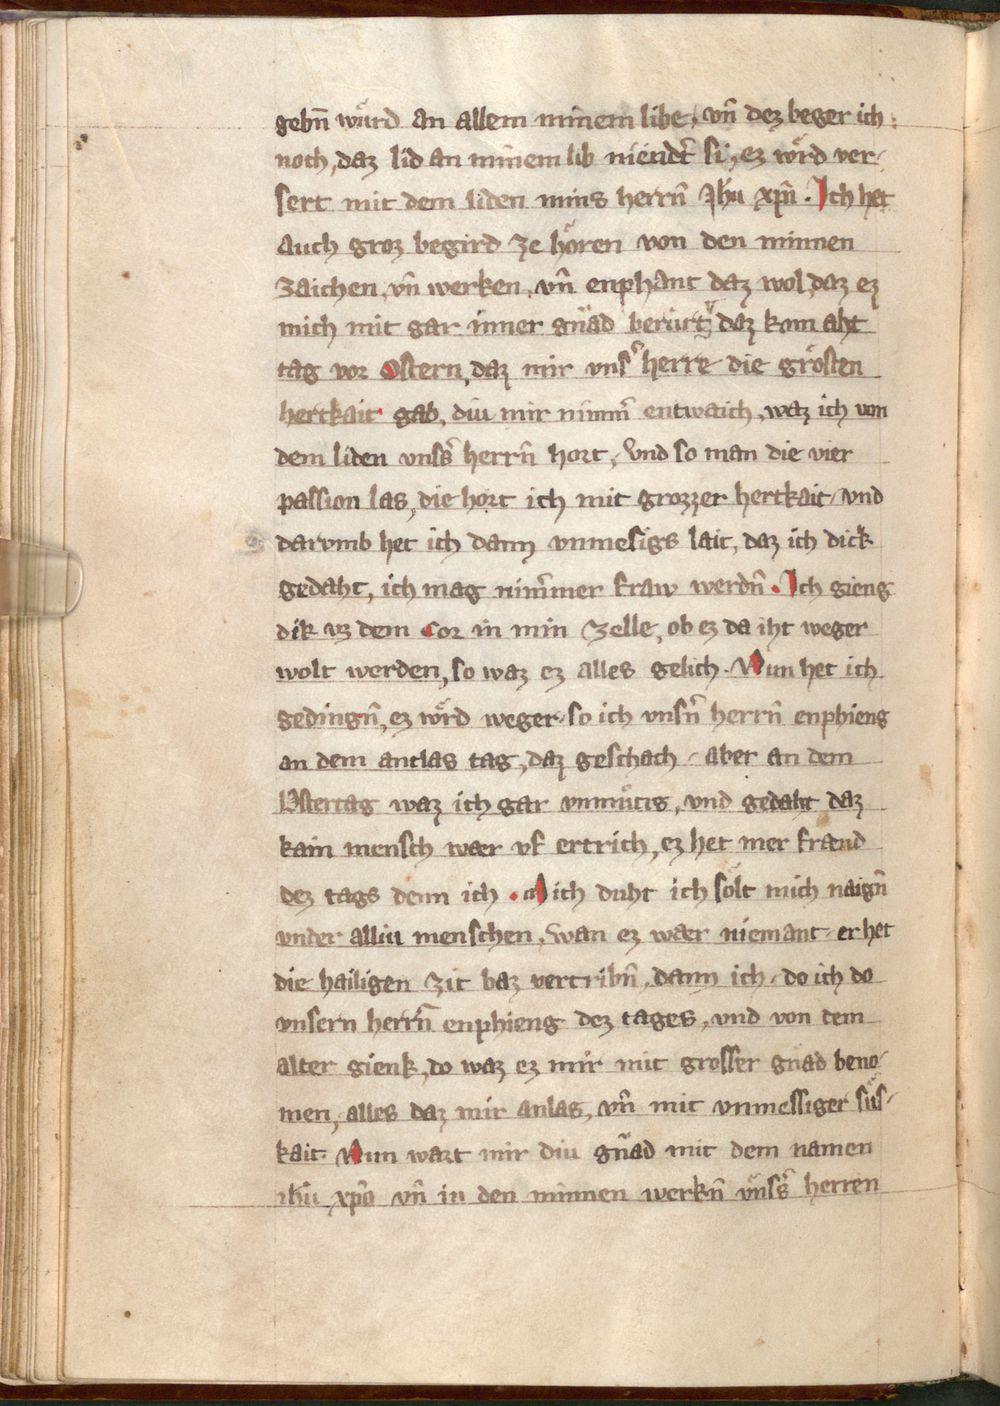 gebn̄ wuͤrd an allem minem libe, vn̄ dez beger ich
noch, daz lid an minem lib niendt̄ si, ez wuͤrd ver-
sert mit dem liden mins herrn̄ Jhū xp̄i. Ich het
auch groz begird ze hoͤren von den minnen
zaichen, vn̄ werken, vn̄ enphant daz wol, daz ez
mich mit gar inner gnād beruͤrt, daz kom aht
tag vor Ostern, daz mir vnsˀ herre die groͤsten
hertkait gab, diu mir nimm̄ entwaich, waz ich von
dem liden vnsˀs herrn̄ hort, Vnd so man die vier
passion las, die hort ich mit grozzer hertkait, vnd
darvmb het ich dann vnmesigs lait, daz ich dick
gedaht, ich mag nim̄mer fraw werdn̄. Ich gieng
dik vz dem Cor in min zelle, ob ez da iht weger
wolt werden, so waz ez alles gelich. Nun het ich
gedingn̄, ez wuͤrd weger, so ich vnsn̄ herrn̄ enphieng
an dem antlas tag, daz geschach. aber an dem
Ostertag waz ich gar vnmuͤtis, vnd gedaht daz
kain mensch waer vf ertrich, ez het mer fraeud
dez tags denn ich. Mich duht ich soͤlt mich naign̄
vnder alliu menschen, wan ez waer niemant er het
die hailigen zit baz vertribn̄, dann ich, do ich do
vnsern herrn̄ enphieng dez tages, vnd von dem
alter gienk, do waz ez mir mit grosser gnād beno-
men, alles daz mir anlas, vn̄ mit vnmessiger suͤs-
kait. Nun wart mir diu gnād mit dem namen
ihū xp̄o vn̄ in den minnen werkn̄ vnsˀs herren